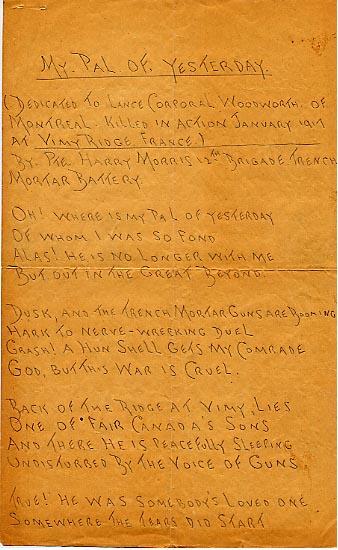 MY. PAL OF. YESTERDAY.
(DEDICATED TO LANCE CORPORAL WOODWORTH. OF
MONTREAL. KILLED IN ACTION JANUARY 1917
AT VIMY RIDGE. FRANCE.)
BY. PTE. HARRY MORRIS 12TH BRIGADE TRENCH
MORTAR BATTERY.
OH! WHERE IS MY PAL OF YESTERDAY
OF WHOM I WAS SO FOND
ALAS! HE IS NO LONGER WITH ME
BUT OUT IN THE GREAT BEYOND.
DUSK, AND THE TRENCH MORTAR GUNS ARE BOOMING
HARK TO NERVE-WRECKING DUEL
CRASH! A HUN SHELL GETS MY COMRADE
GOD, BUT THIS WAR IS CRUEL.
BACK OF THE RIDGE AT VIMY, LIES
ONE OF FAIR CANADA'S SONS
AND THERE HE IS PEACEFULLY SLEEPING
UNDISTURBED BY THE VOICE OF GUNS.
TRUE! HE WAS SOMEBODY'S LOVED ONE
SOMEWHERE THE TEARS DID START